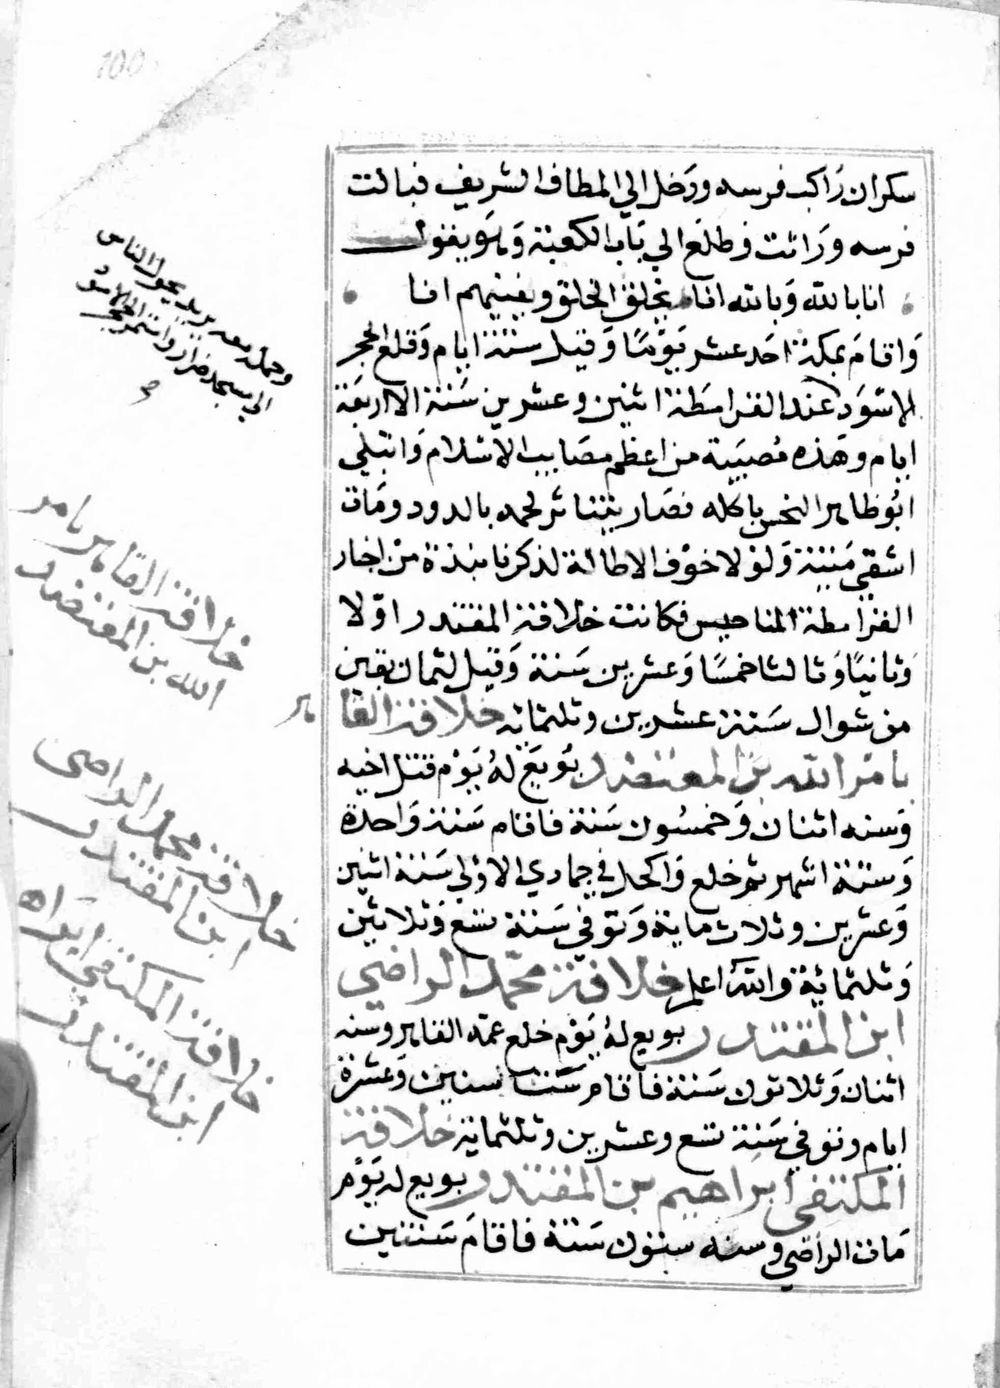 100
سكران راكب فرسه ودخل الي المطاف الشريف فبالت
فرسه وراثت وطلع الي باب الكعبة وهو يقول
انا بالله وبالله انا يخلق الخلق ويفنيهم انا
واقام بمكة احد عشر يوما وقيل ستة ايام وقلع الحجر
الاسود عند القرامطة اثنين وعشرين سنة الا اربعة
ايام وهذه مصيبة من اعظم مصايب الاسلام وابتلي
ابو طاهر النحس باكله فصار يتناثر لحمه بالدود ومات
اشقي ميتة ولولا خوف الاطالة لذكرنا نبذة من اخبار
القرامطة المناحيس فكانت خلافة المقتدر اولا
وثانيا وثالثا خمسا وعشرين سنة وقيل لثمان بقين
من شوال سنة عشرين وثلثمائه خلافة القا
هر
بامر الله بن المعتضد بويع له يوم قتل اخيه
وسنه اثنان وخمسون سنة فاقام سنة واحدة
وستة اشهر ثم خلع واكحل في جمادي الاولي سنة اثنين
وعشرين وثلاث ماية وتوفي سنة تسع وثلاثين
وثلثمائة والله اعلم خلافة محمد الراضي
ابن المقتدر بويع له يوم خلع عمه القاهر وسنه
اثنان وثلاثون سنة فاقام ست سنين وعشرة
ايام وتوفي سنة تسع وعشرين وثلثمائة خلافة
المكتفي ابراهيم بن المقتدر بويع له يوم
مات الراضي وسنه ستون سنة فاقام سنتين
وحمله معه يريد يحول الناس
الي مسجد ضرار واستمر الحجر الاسود
صح
خلافة القاهر بامر
الله بن المعتضد
خلافة محمد الراضي
ابن المقتدر
خلافة المكتفي ابراه
ابن المقتدر